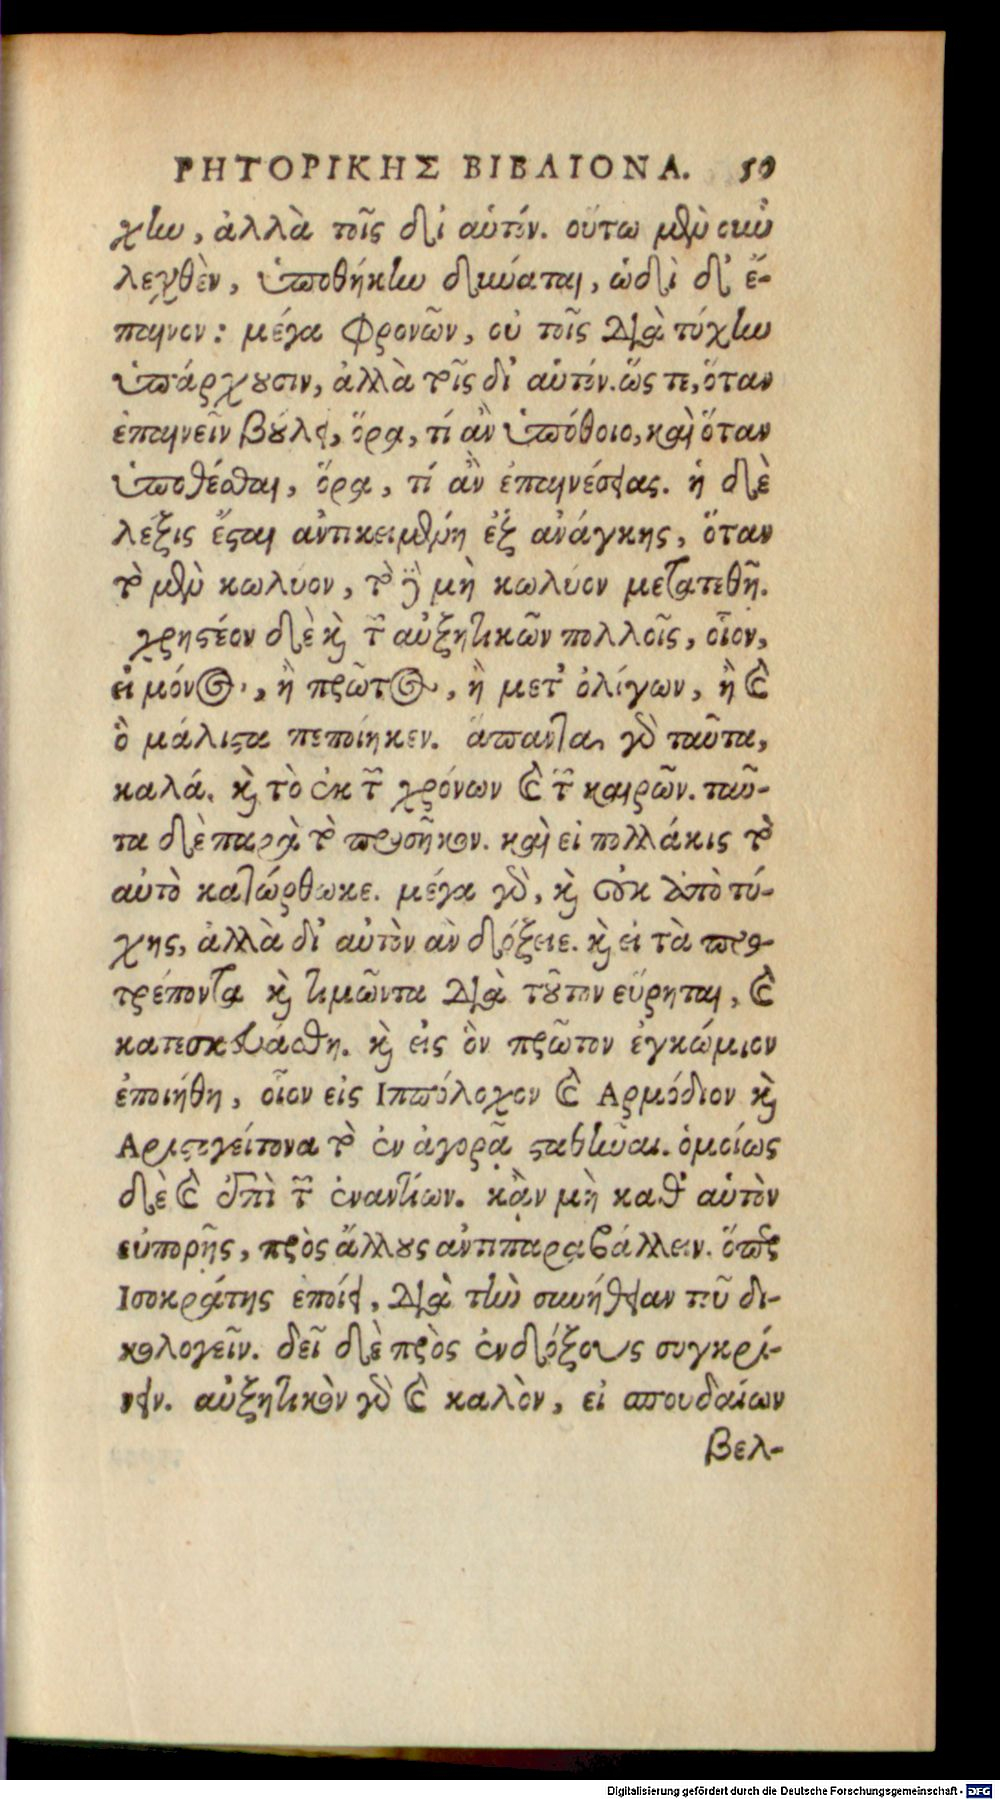 ΡΗΤΟΡΙΚΗΣ ΒΙΒΛΙΟΝ Α. 50
χην, ἀλλὰ τοῖς δι αὑτόν. οὕτω μὲν οὖν
λεχθὲν, ὑποθήκην δύναται, ὡδὶ δ' ἔ-
παινον: μέγα φρονῶν, οὐ τοῖς διὰ τύχην
ὑπάρχουσιν, ἀλλὰ τοῖς δι' αὑτόν. ὥς τε, ὅταν
ἐπαινεῖν βούλει, ὅρα, τί ἂν ὑπόθοιο, καὶ ὅταν
ὑποθέσθαι, ὅρα, τί ἂν ἐπαινέσειας. ἡ δὲ
λέξις ἔσται ἀντικειμένη ἐξ ἀνάγκης, ὅταν
τὸ μὲν κωλύον, τὸ δὲ μὴ κωλύον μετατεθῇ.
χρηστέον δὲ καὶ τῶν αὐξητικῶν πολλοῖς, οἷον,
εἰ μόνος, ἢ πρῶτος, ἢ μετ' ὀλίγων, ἢ καὶ
ὃ μάλιστα πεποίηκεν. ἅπαντα γὰρ ταῦτα,
καλά. καὶ τὸ ἐκ τῶν χρόνων καὶ τῶν καιρῶν. ταῦ-
τα δὲ παρὰ τὸ προσῆκον. καὶ εἰ πολλάκις τὸ
αὐτὸ κατώρθωκε. μέγα γὰρ, καὶ οὐκ ἀπὸ τύ-
χης, ἀλλὰ δι' αὑτὸν ἂν δόξειε. καὶ εἰ τὰ προ-
τρέποντα καὶ τιμῶντα διὰ τοῦτον εὕρηται, καὶ
κατεσκευάσθη. καὶ εἰς ὃν πρῶτον ἐγκώμιον
ἐποιήθη, οἷον εἰς Ιππόλοχον καὶ Αρμόδιον καὶ
Αριστογείτονα τὸ ἐν ἀγορᾷ σταθῆναι. ὁμοίως
δὲ καὶ ἐπὶ τῶν ἐναντίων. κἂν μὴ καθ' αὑτὸν
εὐπορῇς, πρὸς ἄλλους ἀντιπαραβάλλειν. ὅπερ
Ισοκράτης ἐποίει, διὰ τὴν συνήθειαν τοῦ δι-
κολογεῖν. δεῖ δὲ πρὸς ἐνδόξους συγκρί-
νειν. αὐξητικὸν γὰρ καὶ καλὸν, εἰ σπουδαίων
βελ-
Digitalisierung gefördert durch die Deutsche Forschungsgemeinschaft - DFG